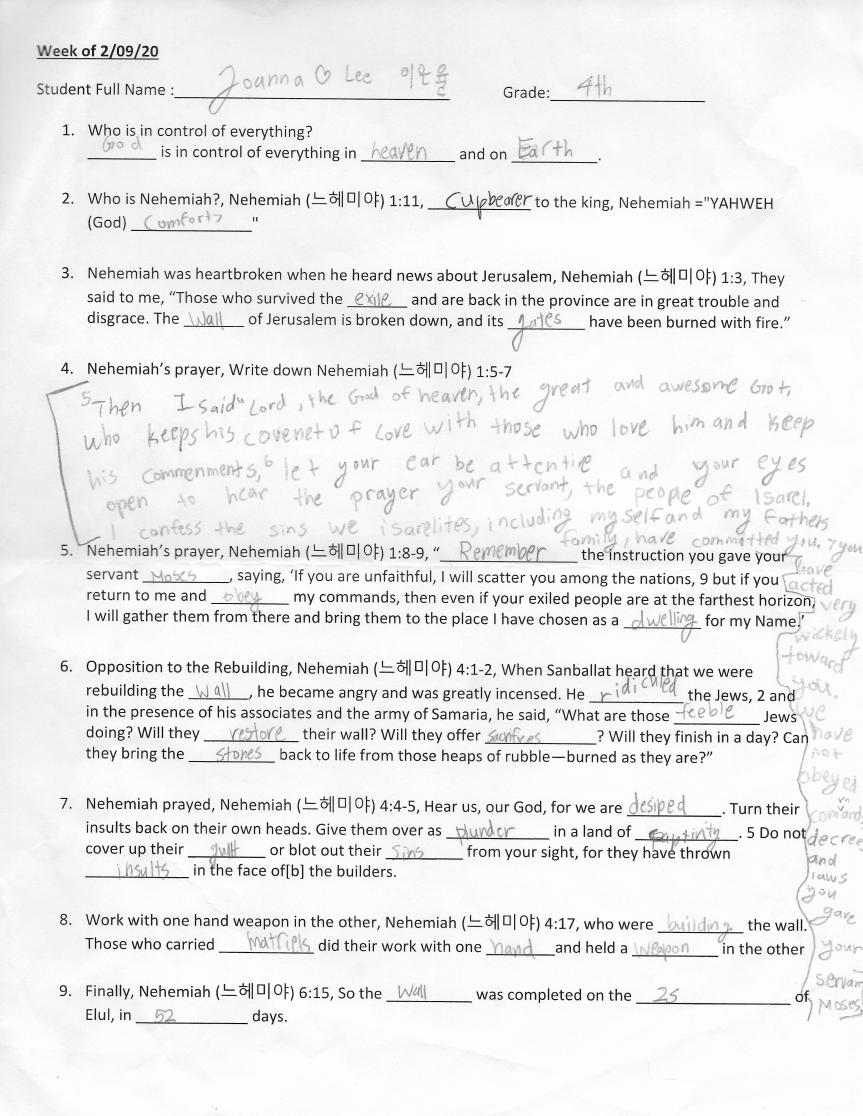 Week of 2/09/20
Student Full Name : Joanna ♡ Lee 이은율
Grade: 4th
1. Who is in control of everything?
God is in control of everything in heaven and on Earth.
2. Who is Nehemiah?, Nehemiah (느헤미야) 1:11, Cupbearer to the king, Nehemiah ="YAHWEH
(God) Comforts"
3. Nehemiah was heartbroken when he heard news about Jerusalem, Nehemiah (느헤미야) 1:3, They
said to me, “Those who survived the exile and are back in the province are in great trouble and
disgrace. The Wall of Jerusalem is broken down, and its gates have been burned with fire.”
4. Nehemiah’s prayer, Write down Nehemiah (느헤미야) 1:5-7
5 Then I said " Lord, the God of heaven, the great and awesome Got,
who keeps his covenet of Love with those who love him and keep
his commenments, 6 let your ear be attentire and your eyes
open to hear the prayer your servant, the people of Isarel,
I confess the sins we isarelites, including my self and my Fathers
family, have committed you. 7 you
5. Nehemiah’s prayer, Nehemiah (느헤미야) 1:8-9, “ Remember the instruction you gave your
servant Moses, saying, ‘If you are unfaithful, I will scatter you among the nations, 9 but if you
return to me and obey my commands, then even if your exiled people are at the farthest horizon,
I will gather them from there and bring them to the place I have chosen as a dwelling for my Name.’
have
acted
very
wickely
toward
you.
we
have
not
obeyed
comands
decree
and
laws
you
gave
your
servan
Moses
6. Opposition to the Rebuilding, Nehemiah (느헤미야) 4:1-2, When Sanballat heard that we were
rebuilding the wall, he became angry and was greatly incensed. He ridiculed the Jews, 2 and
in the presence of his associates and the army of Samaria, he said, “What are those feeble Jews
doing? Will they restore their wall? Will they offer sacrifices? Will they finish in a day? Can
they bring the stones back to life from those heaps of rubble—burned as they are?”
7. Nehemiah prayed, Nehemiah (느헤미야) 4:4-5, Hear us, our God, for we are desiped. Turn their
insults back on their own heads. Give them over as plunder in a land of captivity. 5 Do not
cover up their guilt or blot out their sins from your sight, for they have thrown
insults in the face of[b] the builders.
8. Work with one hand weapon in the other, Nehemiah (느헤미야) 4:17, who were building the wall.
Those who carried matriels did their work with one hand and held a weapon in the other
9. Finally, Nehemiah (느헤미야) 6:15, So the Wall was completed on the 25 of
Elul, in 52 days.